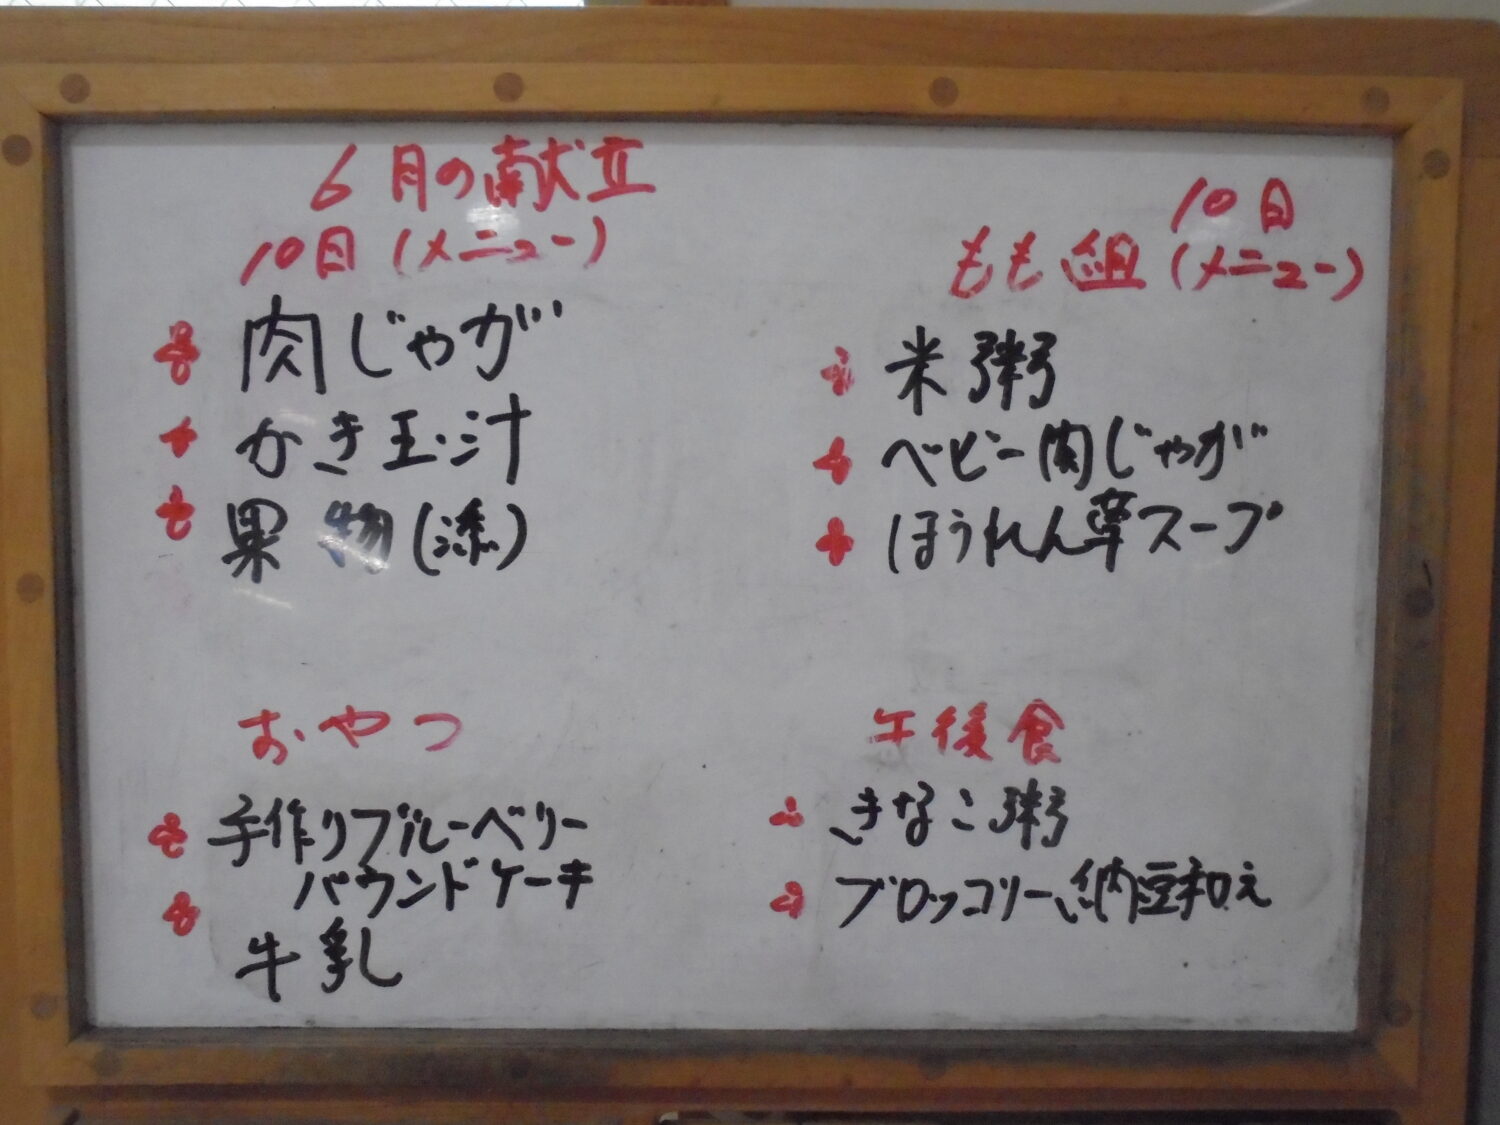 6月の献立
10日(メニュー)
肉じゃが
かき玉汁
果物(添)
おやつ
手作りブルーベリー
パウンドケーキ
牛乳
10日
もも組(メニュー)
米粥
ベビー肉じゃが
ほうれん草スープ
午後食
きなこ粥
ブロッコリー納豆和え